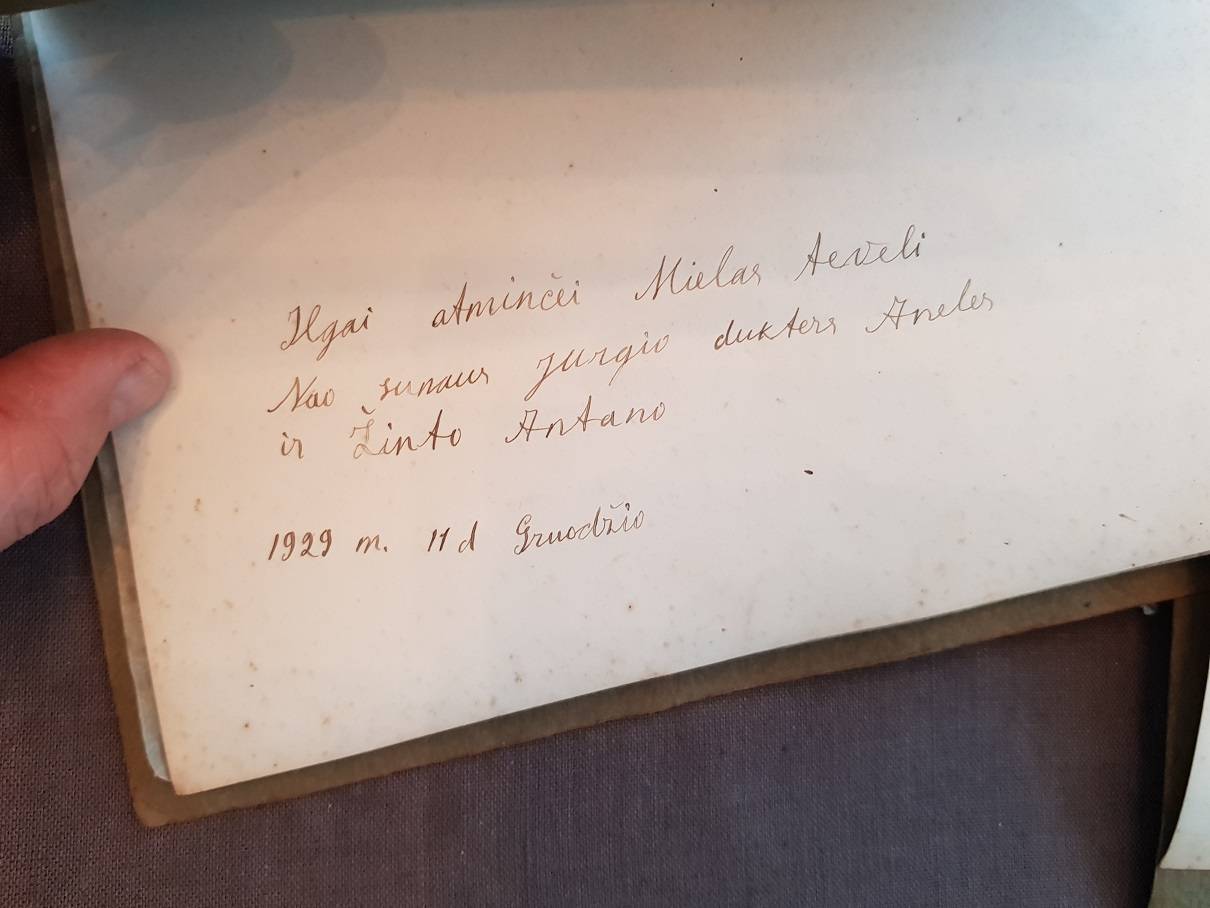 Ilgai atminčei Mielas teveli
Nao sunaus Jurgio dukters Aneles
ir Žinto Antano
1929 m. 11 d Gruodžio